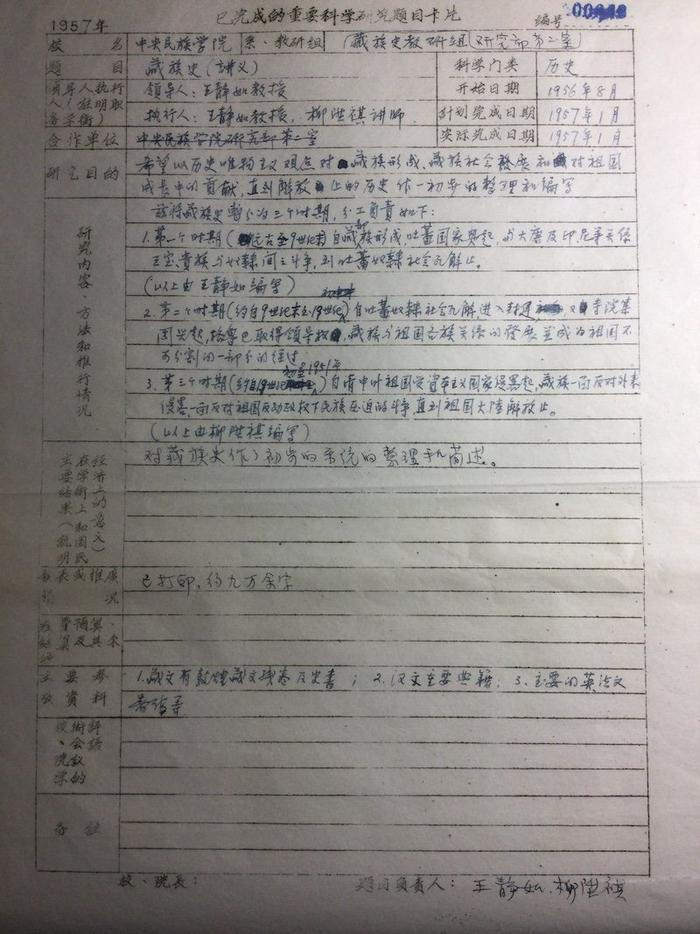 已完成的重要科学研究题目卡片
1957年
编号
校名 中央民族学院 系、教研组 藏族史教研组 研究部第二室
题目 藏族史（讲义） 科学门类 历史
领导人执行人（注明职务学衔） 领导人：王静如教授 开始日期 1956年8月
执行人：王静如教授，柳陞祺讲师 计划完成日期 1957年1月
合作单位 中央民族学院研究部第二室 实际完成日期 1957年1月
研究目的 希望以历史唯物主义观点对藏族形成、藏族社会发展和对祖国
成长中的贡献，直到解放止的历史作一初步的整理和编写
研究内容、方法和推行情况
兹将藏族史暂分为三个时期，分工负责如下：
1.第一个时期（远古至9世纪末）自藏族形成，吐蕃国家兴起，与大唐及印、尼等关系
王室、贵族与奴隶间之斗争，到吐蕃奴隶社会瓦解止。
（以上由王静如编写）
2.第二个时期（约自9世纪末至19世纪初中叶）自吐蕃奴隶社会瓦解，进入封建 寺院集
团兴起，格鲁巴取得领导权，藏族与祖国各族关系的發展並成为祖国不
可分割的一部分的经过
3.第三个时期（约自19世纪初至1951年）自清中叶祖国受资本主义国家侵略起，藏族一面反对外来
侵略一面反对祖国反动政权下民族压迫的斗争直到祖国大陆解放止。
（以上由柳陞祺编写）
主要结果（说明在学术上和国民经济上的意义）
对藏族史作了初步的系统的整理和简述。
发表或推广情况 已打印，约九万余字
主要参考资料 1.藏文有敦煌藏文残卷及史书；2.汉文主要典籍；3.主要的英法文
著作等
备註
校、院长： 题目负责人：王静如、柳陞祺